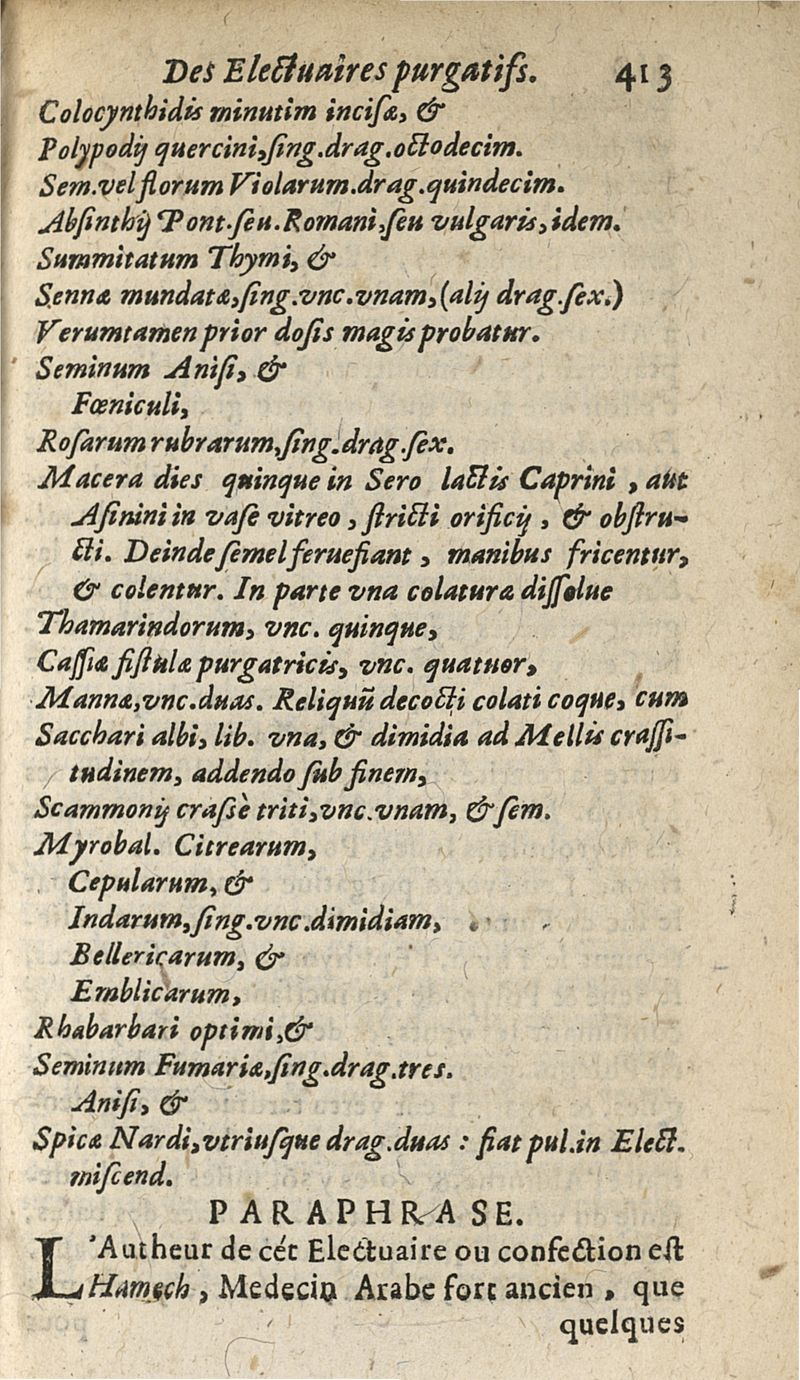 Des Electuaires purgatifs. 413
Colocynthidis minutim incisæ, &
Polypodij quercini, sing.drag.octodecim.
Sem.vel florum Violarum.drag.quindecim.
Absinthij Pont.seu.Romani, seu vulgaris, idem.
Summitatum Thymi, &
Sennæ mundatæ, sing.vnc.vnam, (alij drag.sex.)
Verumtamen prior dosis magis probatur.
Seminum Anisi, &
Fœniculi,
Rosarum rubrarum, sing.drag.sex.
Macera dies quinque in Sero lactis Caprini , aut
Asinini in vase vitreo , stricti orificij , & obstru-
cti. Deinde semel feruefiant , manibus fricentur,
& colentur. In parte vna colaturæ dissolue
Thamarindorum, vnc. quinque,
Cassiæ fistulæ purgatricis, vnc. quatuor,
Mannæ, vnc.duas. Reliquũ decocti colati coque, cum
Sacchari albi, lib. vna, & dimidia ad Mellis crassi-
tudinem, addendo sub finem,
Scammonij crassè triti, vnc.vnam, & sem.
Myrobal. Citrearum,
Cepularum, &
Indarum, sing.vnc.dimidiam,
Bellericarum, &
Emblicarum,
Rhabarbari optimi, &
Seminum Fumariæ, sing.drag.tres.
Anisi, &
Spicæ Nardi, vtriusque drag.duas : fiat pul.in Elect.
miscend.
PARAPHRASE.
L'Autheur de cét Electuaire ou confection est
Hamech , Medecin Arabe fort ancien , que
quelques